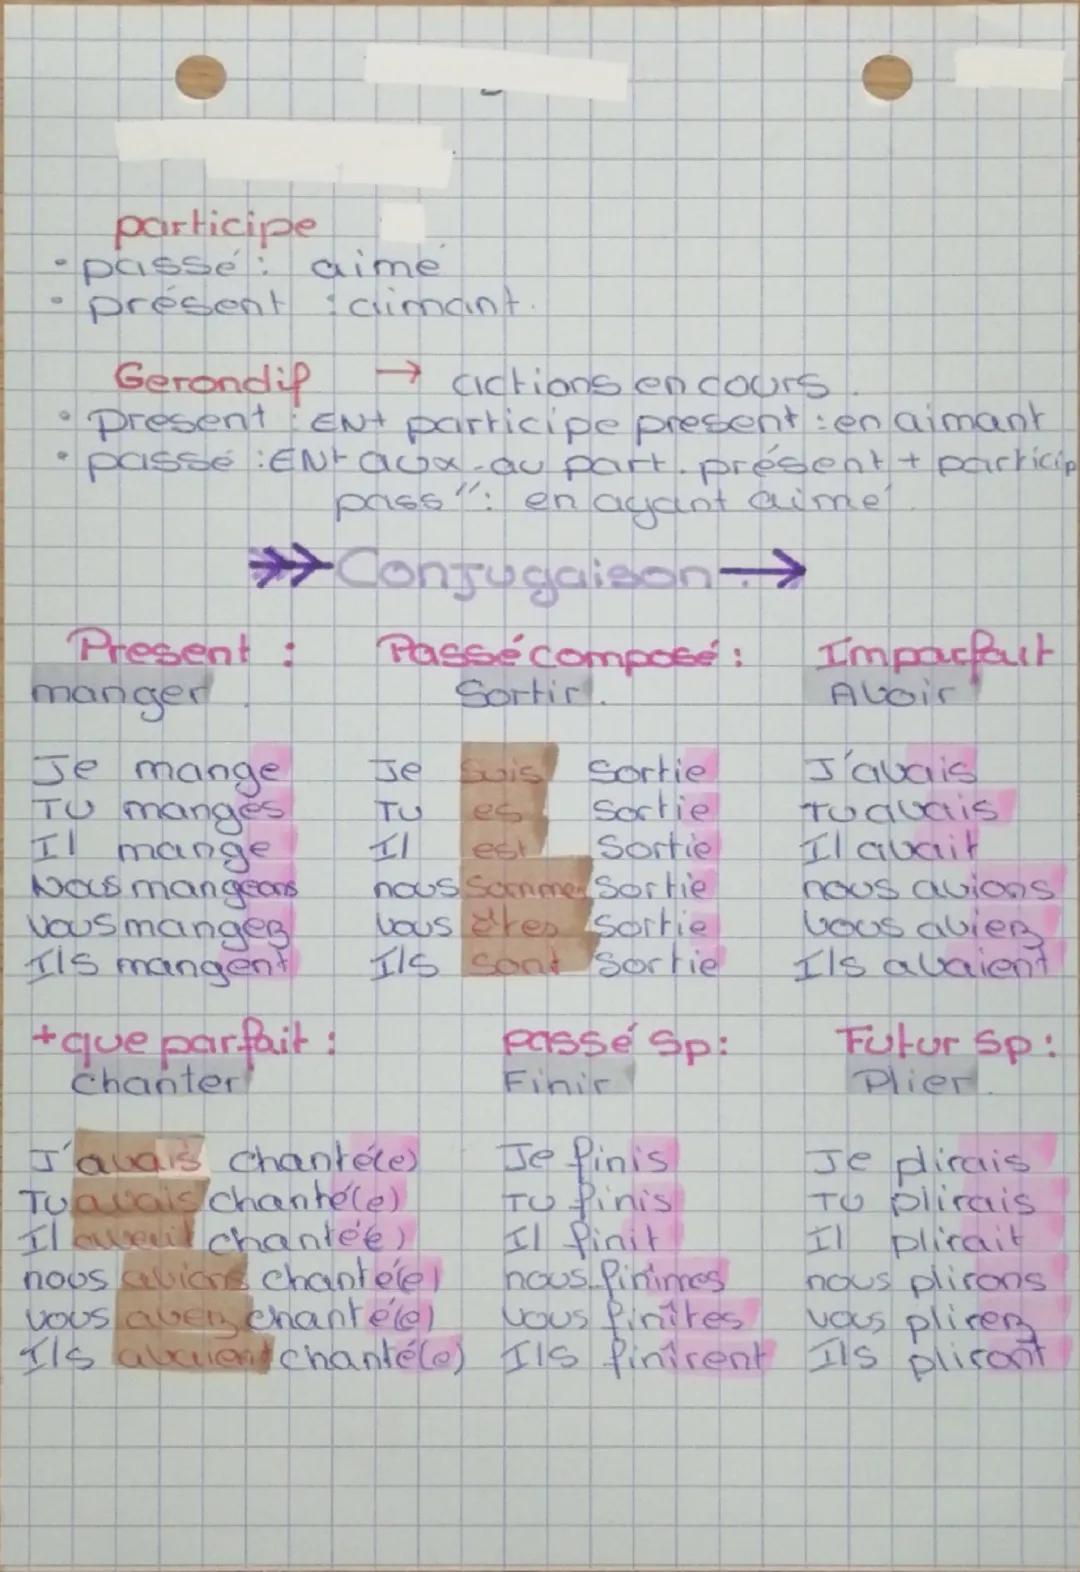 participe
• passé : aimé
• présent : aimant.
Gerondif → actions en cours.
• Present : EN+ participe present : en aimant
• passé : EN+ aux. au part. présent + particip
pass": en ayant aimé.
Conjugaison →
Present :
manger
Je mange
Tu manges
Il mange
Nous mangeons
Vous mangez
Ils mangent
Passé composé :
Sortir.
Je suis Sortie
Tu es Sortie
Il est Sortie
nous sommes Sortie
vous êtes Sortie
Ils sont Sortie
Imparfait
Avoir
J'avais
Tu avais
Il avait
nous avions
vous aviez
Ils avaient
+ que parfait :
chanter
J'avais chanté(e)
Tu avais chanté(e)
Il avait chanté(e)
nous avions chanté(e)
vous avez chanté(e)
Ils avaient chanté(e)
passé Sp :
Finir
Je finis
Tu finis
Il finit
nous finimes
vous finîtes
Ils finîrent
Futur Sp :
Plier.
Je plirais
Tu plirais
Il plirait
nous plirons
vous plirez
Ils pliront